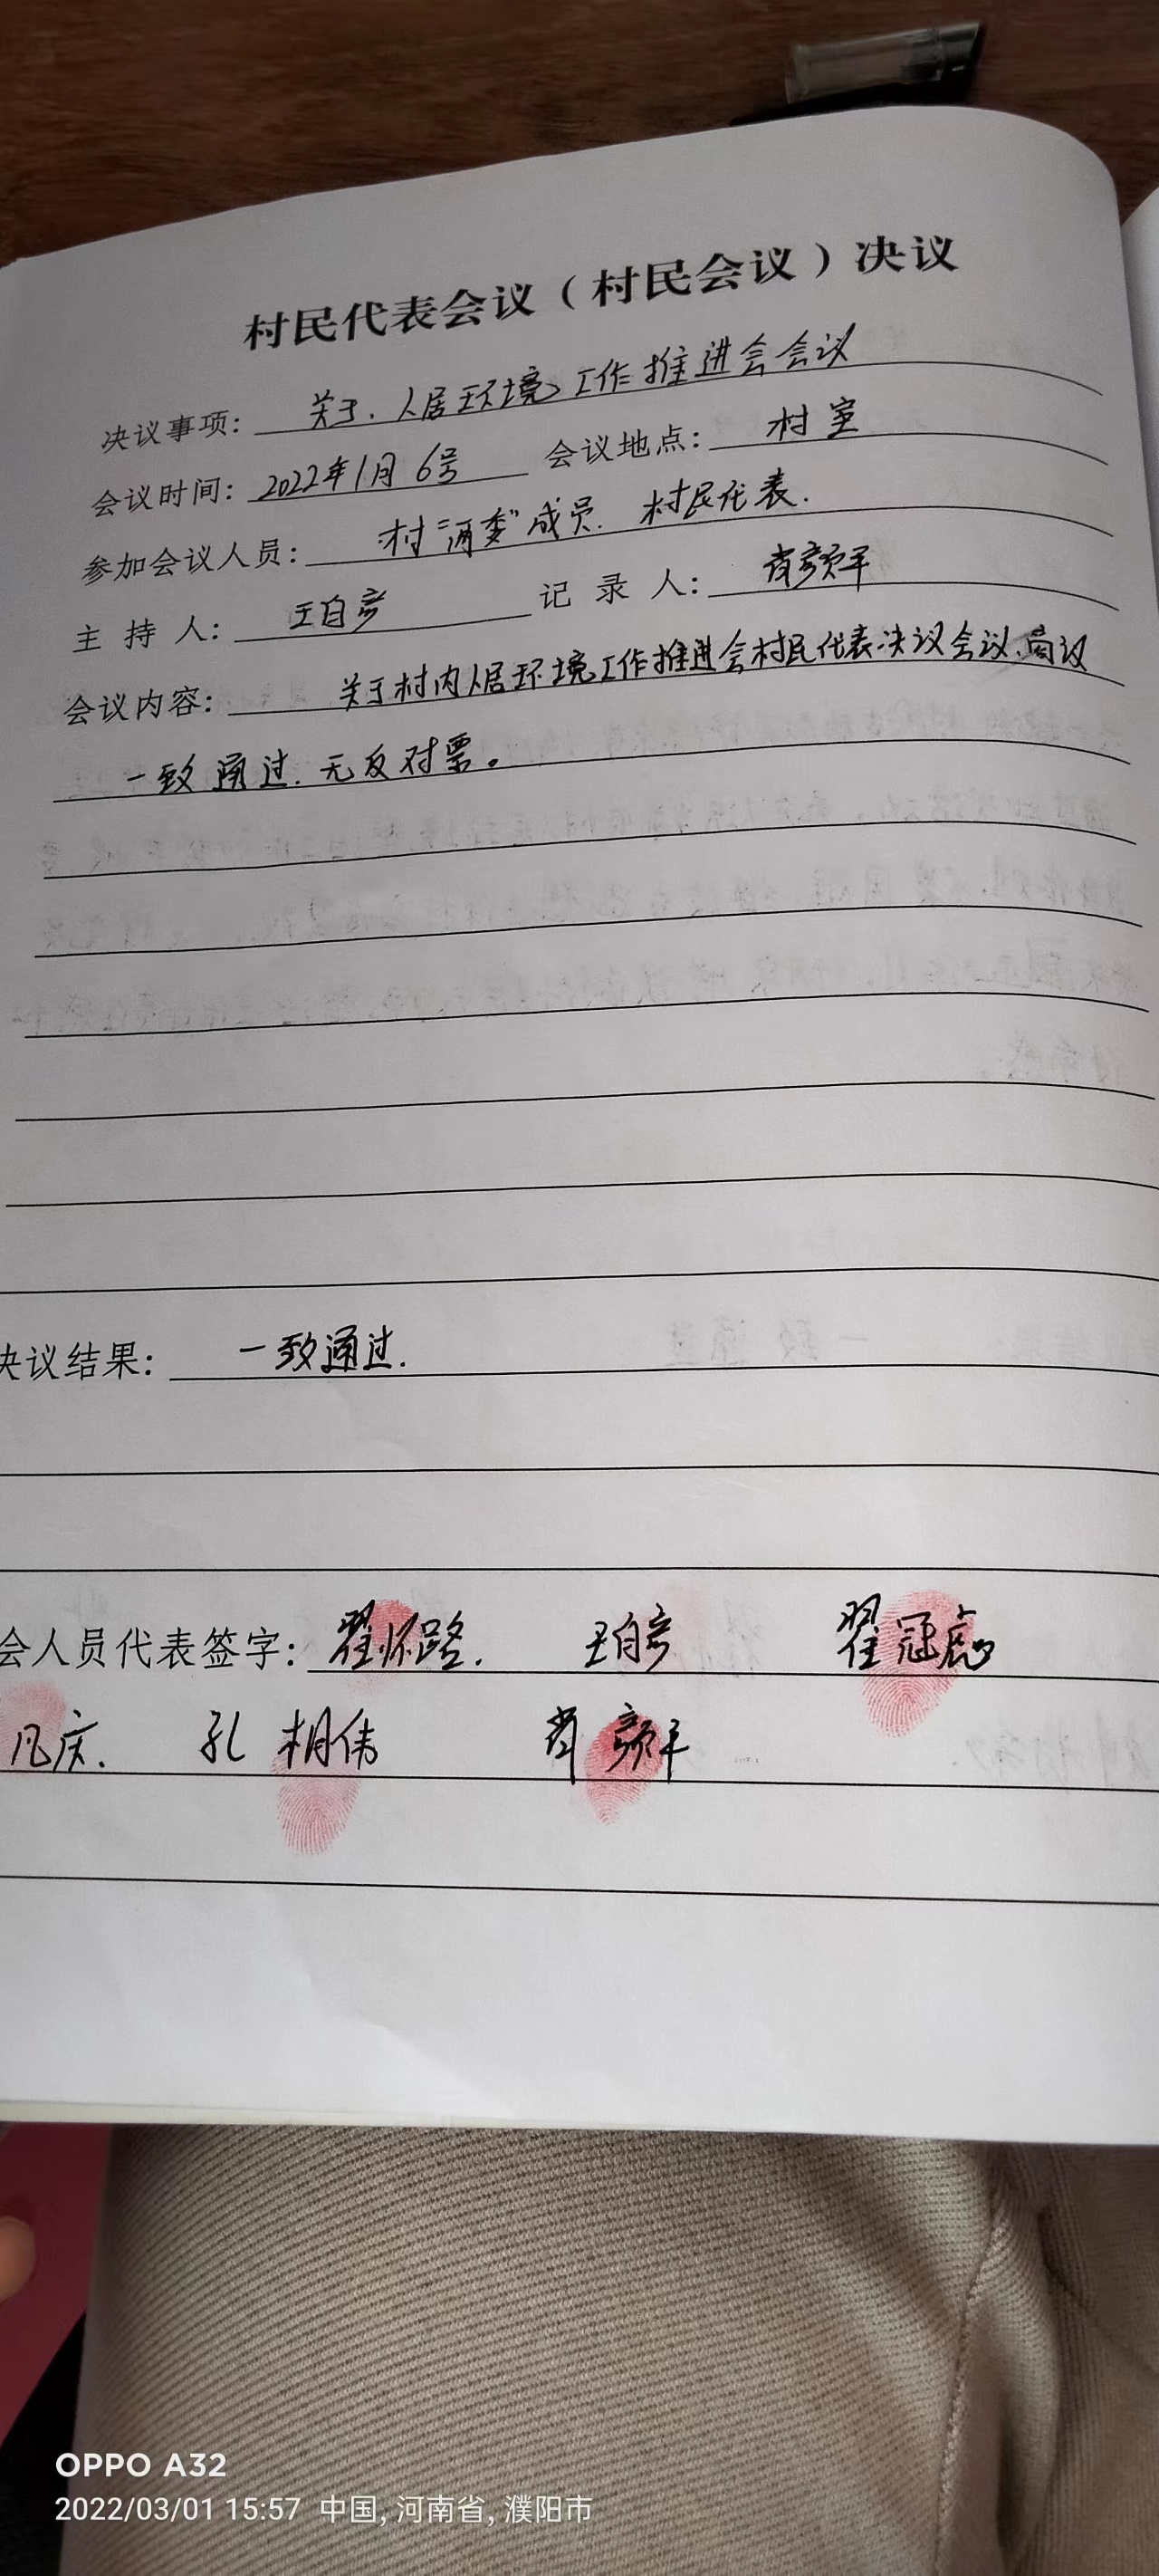 村民代表会议（村民会议）决议
决议事项： 关于.人居环境工作推进会会议
会议时间： 2022年1月6号 会议地点： 村室
参加会议人员： 村"两委"成员. 村民代表.
主 持 人： 王自彦 记 录 人： 肖颜平
会议内容： 关于村内人居环境工作推进会村民代表决议会议.
一致通过.无反对票。
决议结果： 一致通过.
会人员代表签字： 翟怀路. 王自彦 翟冠
凡庆. 孔相伟 肖颜平
OPPO A32
2022/03/01 15:57 中国, 河南省, 濮阳市